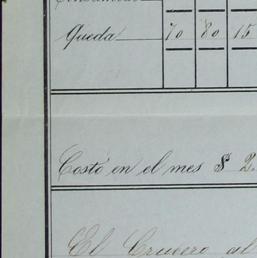 Queda 70 80 15
Costó en el mes $ 2.
El Crucero al